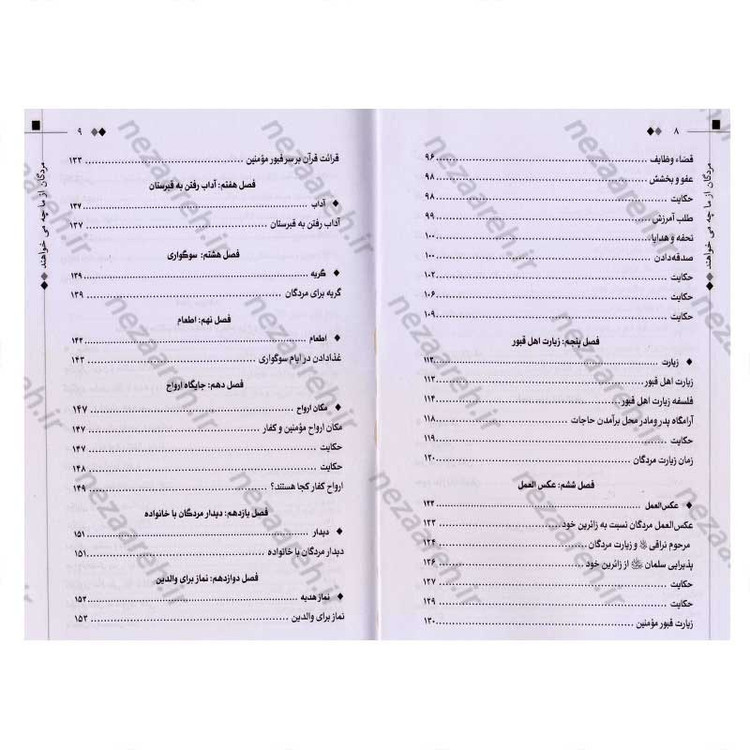 ۸
مردگان از ما چه می خواهند
قضاء وظایف ۹۶
عفو و بخشش ۹۸
حکایت ۹۸
طلب آمرزش ۹۹
تحفه و هدایا ۱۰۰
صدقه‌دادن ۱۰۰
حکایت ۱۰۲
حکایت ۱۰۶
حکایت ۱۰۹
فصل پنجم: زیارت اهل قبور
زیارت ۱۱۳
زیارت اهل قبور ۱۱۳
فلسفه زیارت اهل قبور ۱۱۴
آرامگاه پدر ومادر محل برآمدن حاجات ۱۱۸
حکایت ۱۱۹
زمان زیارت مردگان ۱۲۰
فصل ششم: عکس العمل
عکس‌العمل ۱۲۳
عکس‌العمل مردگان نسبت به زائرین خود ۱۲۳
مرحوم نراقی و زیارت مردگان ۱۲۴
پذیرایی سلمان از زائرین خود ۱۲۶
حکایت ۱۲۷
حکایت ۱۲۹
زیارت قبور مؤمنین ۱۳۰
۹
مردگان از ما چه می خواهند
قرائت قرآن بر سر قبور مؤمنین ۱۳۳
فصل هفتم: آداب رفتن به قبرستان
آداب ۱۳۷
آداب رفتن به قبرستان ۱۳۷
فصل هشتم: سوگواری
گریه ۱۳۹
گریه برای مردگان ۱۳۹
فصل نهم: اطعام
اطعام ۱۴۳
غذادادن در ایام سوگواری ۱۴۳
فصل دهم: جایگاه ارواح
مکان ارواح ۱۴۷
مکان ارواح مؤمنین و کفار ۱۴۷
حکایت ۱۴۷
حکایت ۱۴۸
ارواح کفار کجا هستند؟ ۱۴۹
فصل یازدهم: دیدار مردگان با خانواده
دیدار ۱۵۱
دیدار مردگان با خانواده ۱۵۱
فصل دوازدهم: نماز برای والدین
نماز هدیه ۱۵۳
نماز برای والدین ۱۵۳
nezaareh.ir